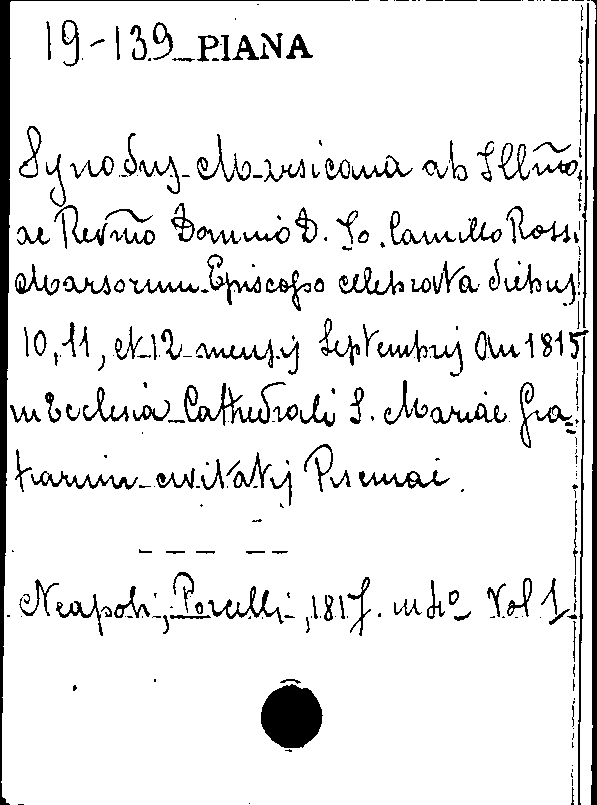 19-139 PIANA
Synodus Marsicana ab Illm̃o
ac Revm̃o Domino D. Jo. Camillo Rossi
Marsorum Episcopo celebrata diebus
10, 11, et 12 mensis Septembris An 1815
in Ecclesia Cathedrali S. Mariae Gra=
tiarum civitatis Piscinae.
Neapoli, Porcelli, 1817. in 4º Vol 1